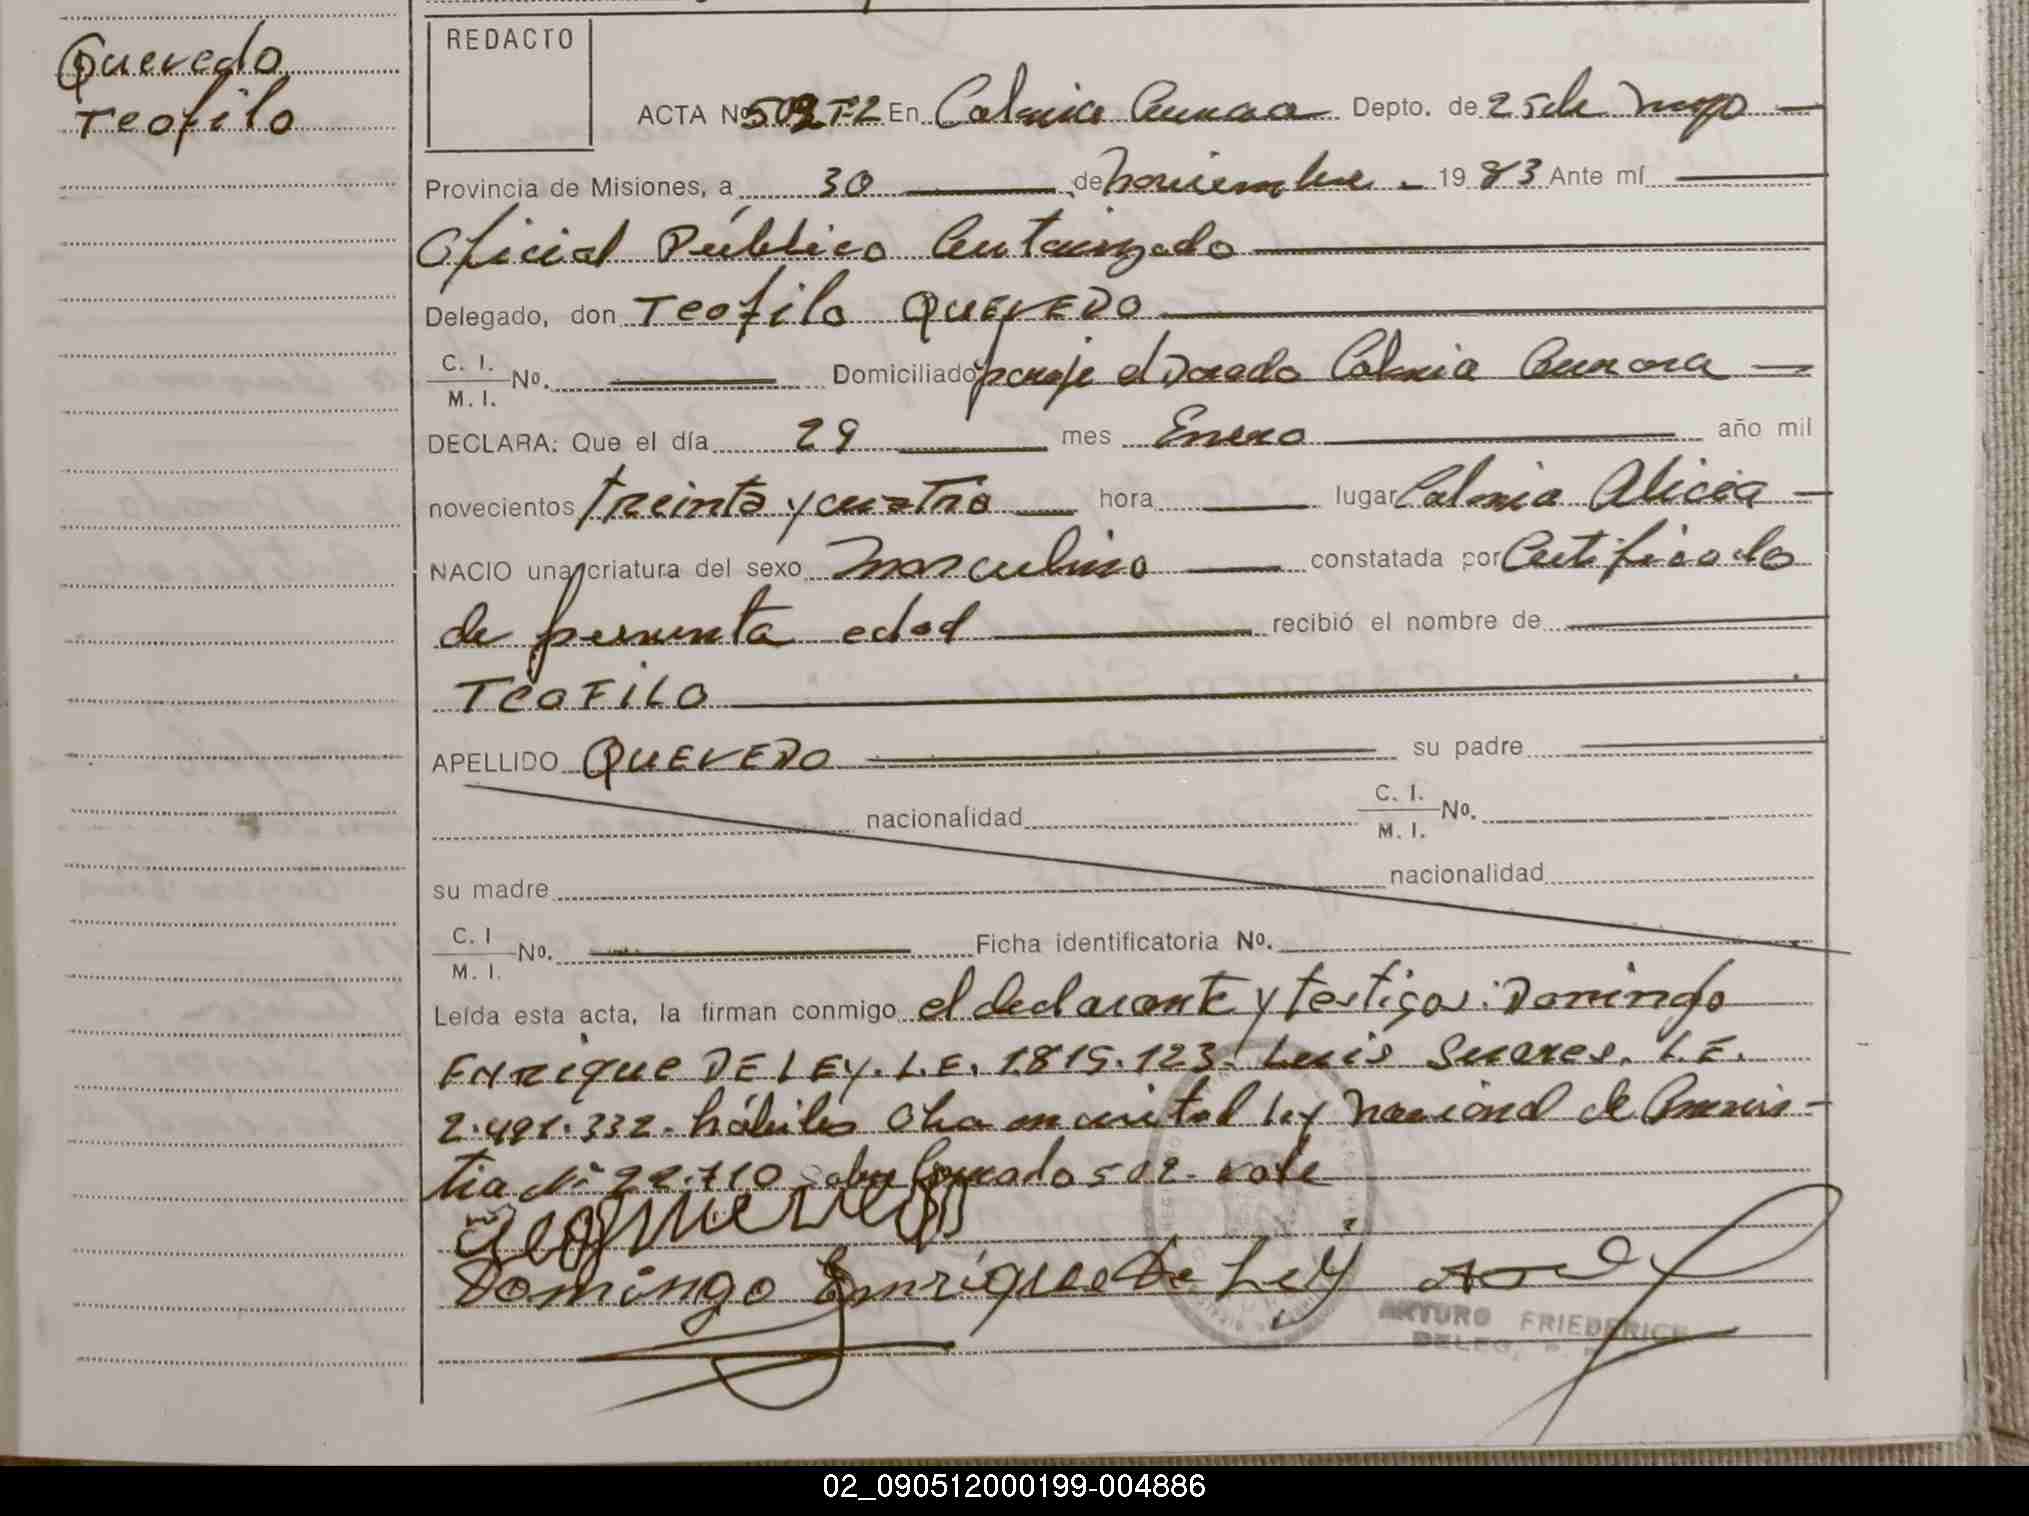 Quevedo
Teofilo
REDACTO
ACTA Nº 502 T-2 En Colonia Aurora Depto. de 25 de Mayo
Provincia de Misiones, a 30 de noviembre 1983 Ante mí
Oficial Público Autorizado
Delegado, don Teofilo QUEVEDO
C. I. / M. I. Nº. Domiciliado paraje el Dorado Colonia Aurora
DECLARA: Que el día 29 mes Enero año mil
novecientos treinta y cuatro hora lugar Colonia Alicia
NACIO una criatura del sexo masculino constatada por Certificado
de presunta edad recibió el nombre de
TEOFILO
APELLIDO QUEVEDO su padre
nacionalidad C. I. / M. I. Nº.
su madre nacionalidad
C. I / M. I. Nº. Ficha identificatoria Nº.
Leída esta acta, la firman conmigo el declarante y testigos: Domingo
ENRique DE LEY. L.E. 1.815.123. Luis Suares. L.E.
2.491.332. hábiles Ley Nacional de Amnis-
tia Nº 22.710 sobre borrado 502. vale
Domingo Enrique De Ley
ARTURO FRIEDERICH
DELEG.
02_090512000199-004886